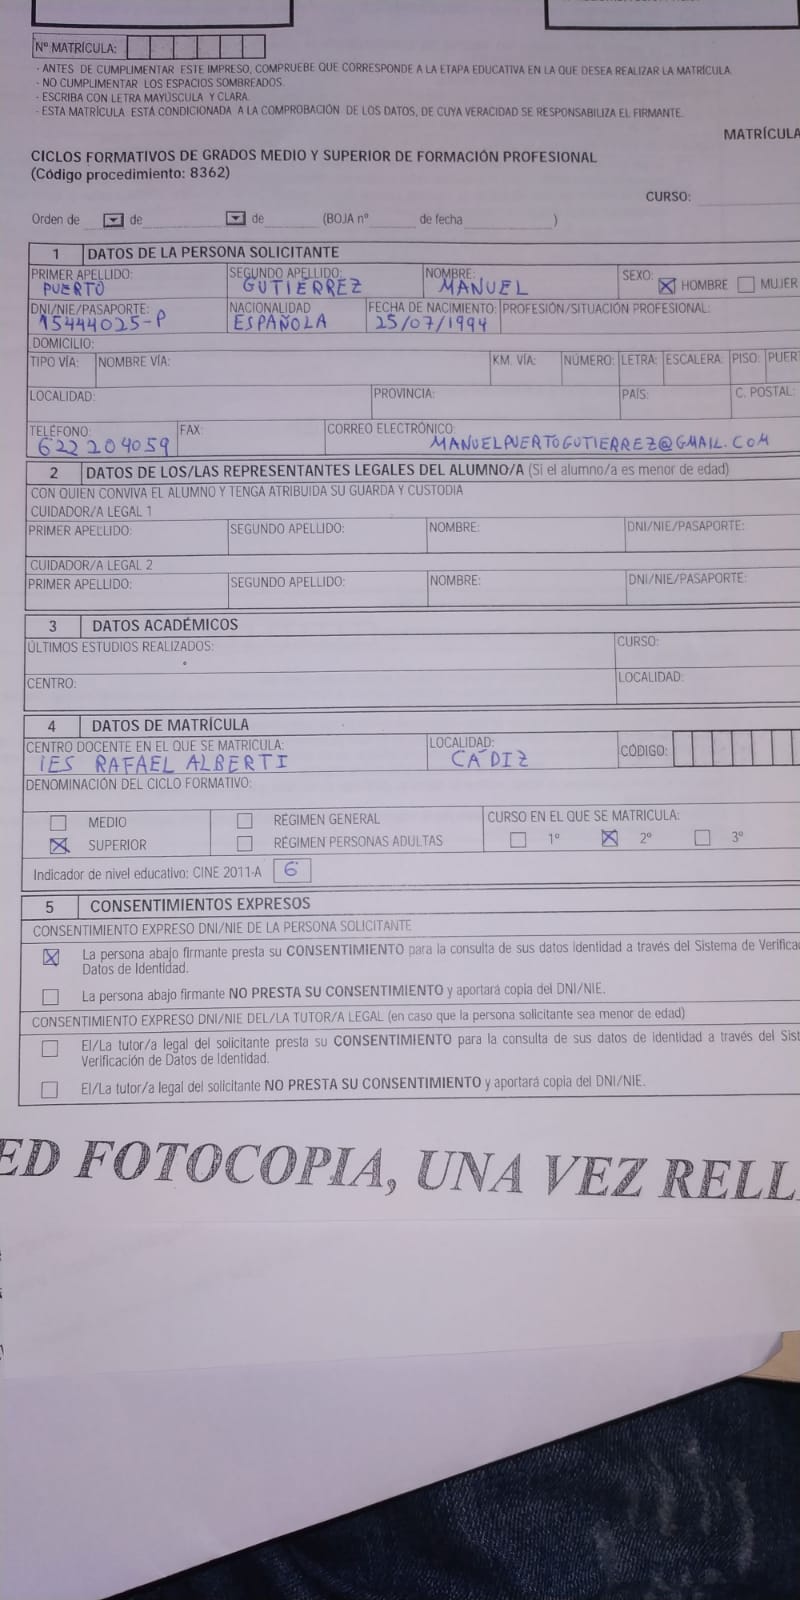 Nº MATRÍCULA:
- ANTES DE CUMPLIMENTAR ESTE IMPRESO, COMPRUEBE QUE CORRESPONDE A LA ETAPA EDUCATIVA EN LA QUE DESEA REALIZAR LA MATRÍCULA.
- NO CUMPLIMENTAR LOS ESPACIOS SOMBREADOS.
- ESCRIBA CON LETRA MAYÚSCULA Y CLARA.
- ESTA MATRÍCULA ESTÁ CONDICIONADA A LA COMPROBACIÓN DE LOS DATOS, DE CUYA VERACIDAD SE RESPONSABILIZA EL FIRMANTE.
MATRÍCULA
CICLOS FORMATIVOS DE GRADOS MEDIO Y SUPERIOR DE FORMACIÓN PROFESIONAL
(Código procedimiento: 8362)
CURSO:
Orden de de de (BOJA nº de fecha )
1 DATOS DE LA PERSONA SOLICITANTE
PRIMER APELLIDO: SEGUNDO APELLIDO: NOMBRE: SEXO: HOMBRE MUJER
PUERTO GUTIÉRREZ MANUEL
DNI/NIE/PASAPORTE: NACIONALIDAD FECHA DE NACIMIENTO: PROFESIÓN/SITUACIÓN PROFESIONAL:
15444025-P ESPAÑOLA 25/07/1994
DOMICILIO:
TIPO VÍA: NOMBRE VÍA: KM. VÍA: NÚMERO: LETRA: ESCALERA: PISO: PUER
LOCALIDAD: PROVINCIA: PAÍS: C. POSTAL:
TELÉFONO: FAX: CORREO ELECTRÓNICO:
622 204059 MANUELPUERTOGUTIERREZ@GMAIL.COM
2 DATOS DE LOS/LAS REPRESENTANTES LEGALES DEL ALUMNO/A (Si el alumno/a es menor de edad)
CON QUIEN CONVIVA EL ALUMNO Y TENGA ATRIBUIDA SU GUARDA Y CUSTODIA
CUIDADOR/A LEGAL 1
PRIMER APELLIDO: SEGUNDO APELLIDO: NOMBRE: DNI/NIE/PASAPORTE:
CUIDADOR/A LEGAL 2
PRIMER APELLIDO: SEGUNDO APELLIDO: NOMBRE: DNI/NIE/PASAPORTE:
3 DATOS ACADÉMICOS
ÚLTIMOS ESTUDIOS REALIZADOS: CURSO:
CENTRO: LOCALIDAD:
4 DATOS DE MATRÍCULA
CENTRO DOCENTE EN EL QUE SE MATRICULA: LOCALIDAD: CÓDIGO:
IES RAFAEL ALBERTI CÁDIZ
DENOMINACIÓN DEL CICLO FORMATIVO:
MEDIO RÉGIMEN GENERAL CURSO EN EL QUE SE MATRICULA:
SUPERIOR RÉGIMEN PERSONAS ADULTAS 1º 2º 3º
Indicador de nivel educativo: CINE 2011-A 6
5 CONSENTIMIENTOS EXPRESOS
CONSENTIMIENTO EXPRESO DNI/NIE DE LA PERSONA SOLICITANTE
La persona abajo firmante presta su CONSENTIMIENTO para la consulta de sus datos Identidad a través del Sistema de Verifica
Datos de Identidad.
La persona abajo firmante NO PRESTA SU CONSENTIMIENTO y aportará copia del DNI/NIE.
CONSENTIMIENTO EXPRESO DNI/NIE DEL/LA TUTOR/A LEGAL (en caso que la persona solicitante sea menor de edad)
El/La tutor/a legal del solicitante presta su CONSENTIMIENTO para la consulta de sus datos de identidad a través del Sist
Verificación de Datos de Identidad.
El/La tutor/a legal del solicitante NO PRESTA SU CONSENTIMIENTO y aportará copia del DNI/NIE.
ED FOTOCOPIA, UNA VEZ RELL